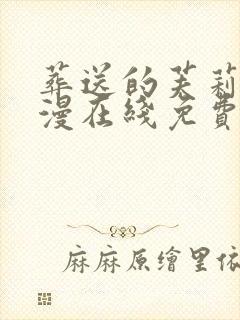 葬送的芙莉
漫在綫免費
麻麻原繪里依